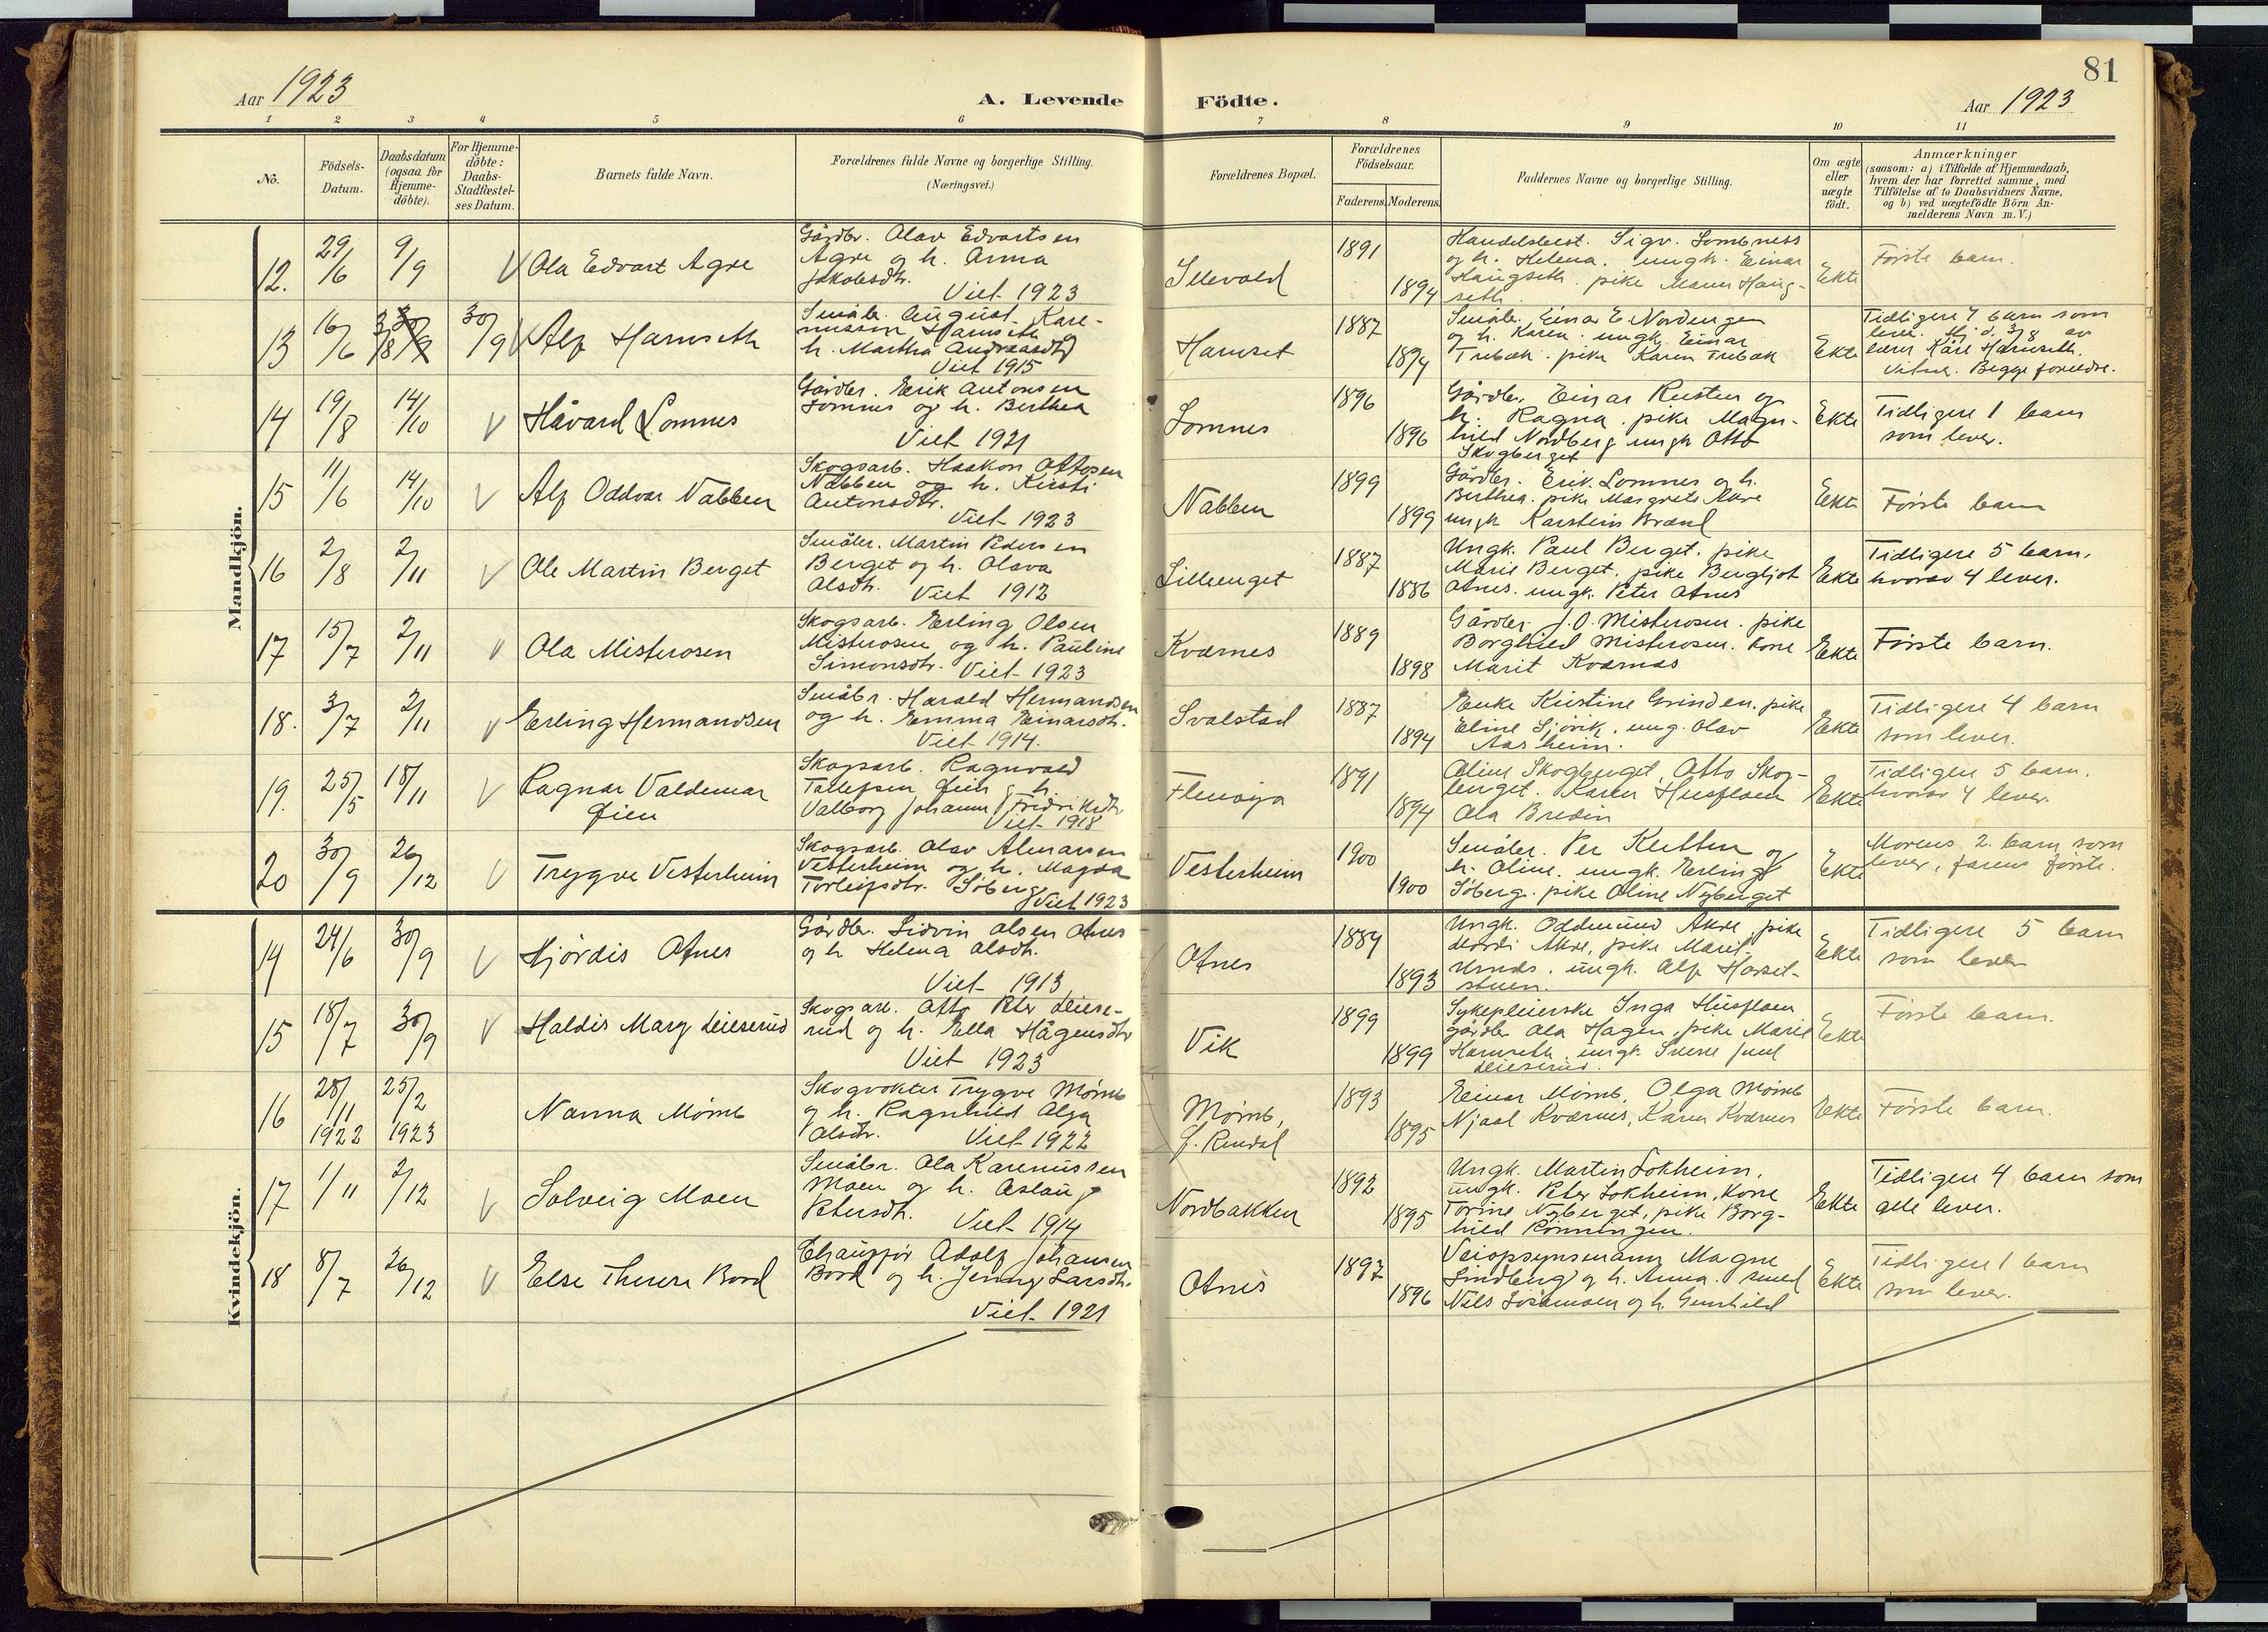 81
Aar 1923
A. Levende Födte.
Aar 1923
1 2 3 4 5 6 7 8 9 10 11
No.
Födsels-
Datum.
Daabsdatum
(ogsaa for
Hjemme-
döbte).
For Hjemme-
döbte:
Daabs-
Stadfæstel-
ses Datum.
Barnets fulde Navn.
Forældrenes fulde Navne og borgerlige Stilling.
(Næringsvei.)
Forældrenes Bopæl.
Forældrenes
Födselsaar.
Faderens. Moderens.
Faddernes Navne og borgerlige Stilling.
Om ægte
eller
uægte
födt.
Anmærkninger
(saasom: a) i Tilfælde af Hjemmedaab,
hvem der har forrettet samme, med
Tilföielse af to Daabsvidners Navne,
og b) ved uægtefödte Börn An-
melderens Navn m. V.)
Mandkjön.
12. 29/6 9/9 V Ola Edvart Agre
Gårdbr. Olav Edvartsen
Agre og h. Anna
Jakobsdtr.
Viet 1923
Illevold
1891
1894
Handelsbest. Sigv.
og h. Helena. ungk. Einar
Haugseth. pike Haug-
seth
Ekte
Første barn.
13 16/6 3/8 30/9 30/9 V Alf Harnseth
Småbr. August Kare-
nussen Harnseth
h. Martha Andreasdtr
Viet 1915
Harnset
1887
1894
Småbr. Einar E. Nordengen
og h. Karen. ungk. Einar
Trebak. pike Karen Trebak
Ekte
Tidligere 4 barn som
lever. Hj. d. 3/8 av
lærer Kåre Harnseth.
Vitner. Begge foreldre.
14 19/8 14/10 V Håvard Lomnes
Gårdbr. Erik Antonsen
Lomnes og h. Berthea
Viet 1921
Lomnes
1896
1896
Gårdbr. Einar Rusten og
h. Ragna. pike Magn-
hild Nordberg ungk Otto
Skogberget
Ekte
Tidligere 1 barn
som lever.
15 11/6 14/10 V Alf Oddvar Nabben
Skogsarb. Haakon Ottosen
Nabben og h. Kirsti
Antonsdtr.
Viet 1923
Nabben
1899
1899
Gårdbr. Erik Lomnes og h.
Berthea. pike Margrete Akre
ungk Karstein
Ekte
Første barn
16 2/8 2/11 V Ole Martin Berget
Småbr. Martin Pedersen
Berget og h. Olava
Olsdtr. Viet 1912
Lilleenget
1887
1886
Ungk. Paul Berget. pike
Marie Berget. pike Bergljot
Otnes. ungk. Peter Otnes
Ekte
Tidligere 5 barn,
hvorav 4 lever.
17 15/7 2/11 V Ola Misterosen
Skogsarb. Erling Olsen
Misterosen og h. Pauline
Simonsdtr. Viet 1923
Kværnes
1889
1898
Gårdbr. J. O. Misterosen. pike
Borghild Misterosen. Kone
Marit Kværnes
Ekte
Første barn.
18. 3/7 2/11 V Erling Hermandsen
Småbr. Harald Hermandsen
og h. Emma Einarsdtr.
Viet 1914.
Svalstad
1887
1894
Enke Kirstine Grinden. pike
Eline Sjøvik. ung. Olav
Aasheim.
Ekte
Tidligere 4 barn
som lever.
19. 25/5 18/11 V Ragnar Valdemar
Øien
Skogsarb. Ragnvald
Øien og h.
Valborg Johanne Fredriksdtr
Viet 1918
Flenøya
1891
1894
Oline Skogberget, Otto Skog-
berget. Karen Husfloen
Ola Bredin
Ekte
Tidligere 5 barn.
hvorav 4 lever.
20 30/9 26/12 V Trygve Vesterheim
Skogsarb. Olav
Vesterheim og h. Magda
Torleifsdtr. Søberg Viet 1923
Vesterheim
1900
1900
Småbr. Per og
h. Oline. ungk. Erling
Söberg. pike Oline Nyberget
Ekte
Morens 2. barn som
lever, farens første.
Kvindekjön.
14 24/6 30/9 V Hjördis Otnes
Gårdbr. Sidvin Olsen Otnes
og h Helena Olsdtr.
Viet 1913
Otnes
1889
1893
Ungk. Oddmund Akre, pike
Akre, pike Marit
ungk. Alf Harset-
stuen.
Ekte
Tidligere 5 barn
som lever
15 18/7 30/9 V Haldis Mary Leiserud
Skogsarb. Otto Peter Leise-
rud og h. Ella Hågensdtr
Viet 1923
Vik
1899
1899
Sykepleierske Inga Husfloen
gårdbr Ola Hagen, pike Marie
Harnseth, ungk. Juul
Leiserud.
Ekte
Første barn.
16 28/11 1922 25/2 1923 Nanna Mömb
Skogvokter Trygve Mömb
og h. Ragnhild Olga
Olsdtr. Viet 1922
Mömb,
Y. Rendal
1893
1895
Einar Mömb, Olga Mömb
Njaal Kværnes, Karen Kværnes
Ekte
Første barn.
17 1/11 2/12 V Solveig Moen
Småbr. Ola Karenussen
Moen og h. Aslaug
Petersdtr. Viet 1914
Nordbakken
1892
1895
Ungk. Martin Lokheim,
ungk. Peter Lokheim, Kone
Torine Nyberget, pike Borg-
hild Rönningen.
Ekte
Tidligere 4 barn som
alle lever.
18 8/7 26/12 V Else Therese Bord
Chaufför Adolf Johansen
Bord og h. Jenny Larsdtr.
Viet 1921
Otnes
1897
1896
Veiopsynsmann Magne
Lindberg og h. Anna. smed
Nils og h. Gunhild
Ekte
Tidligere 1 barn
som lever.